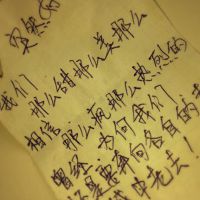 突然
我们
那么甜那么美那么
相信 那么疯那么热烈的
曾经 为何我们
还是要奔向各自的
中老去！